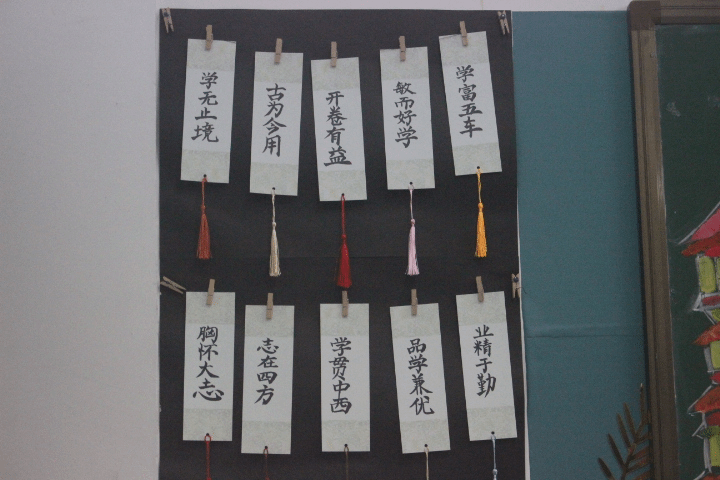 学无止境
古为今用
开卷有益
敏而好学
学富五车
胸怀大志
志在四方
学贯中西
品学兼优
业精于勤